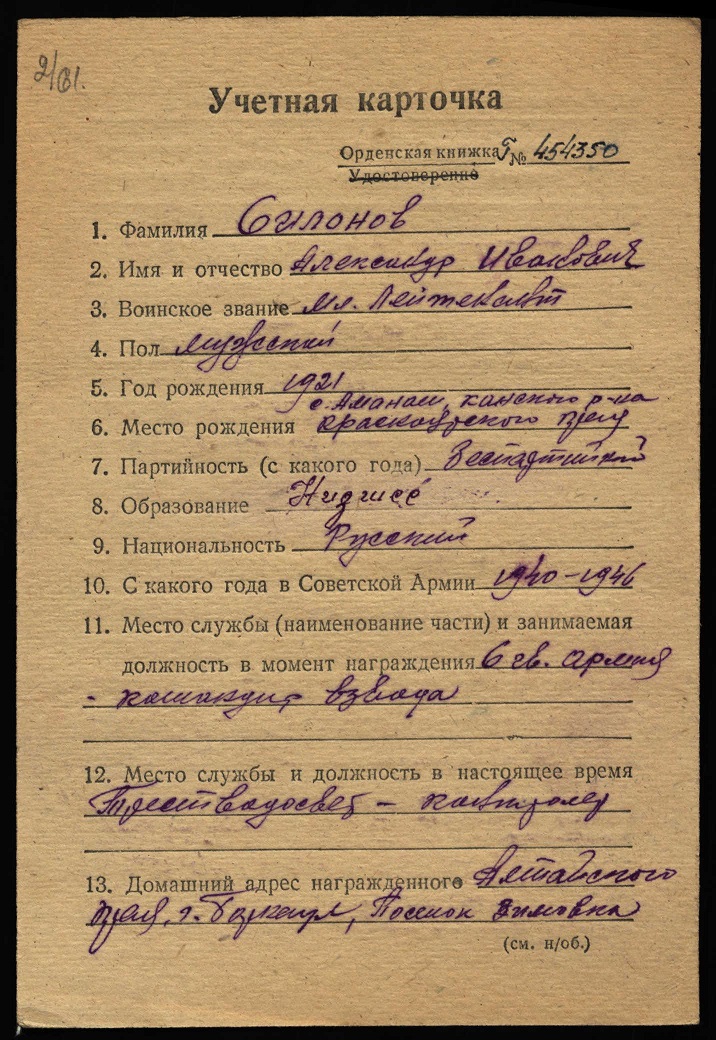 2/61.
Учетная карточка
Орденская книжка Г № 454350
Удостоверение
1. Фамилия Силонов
2. Имя и отчество Александр Иванович
3. Воинское звание мл. Лейтенант
4. Пол мужской
5. Год рождения 1921
с. Аманаш, канского р-на
6. Место рождения красноярского края
7. Партийность (с какого года) беспартийный
8. Образование Низшее
9. Национальность Русский
10. С какого года в Советской Армии 1940-1946
11. Место службы (наименование части) и занимаемая
должность в момент награждения 6 гв. армия
- командир взвода
12. Место службы и должность в настоящее время
Трест Водосвет - контролер
13. Домашний адрес награжденного Алтайского
края, г. Барнаул, Поселок Зимовка
(см. н/об.)